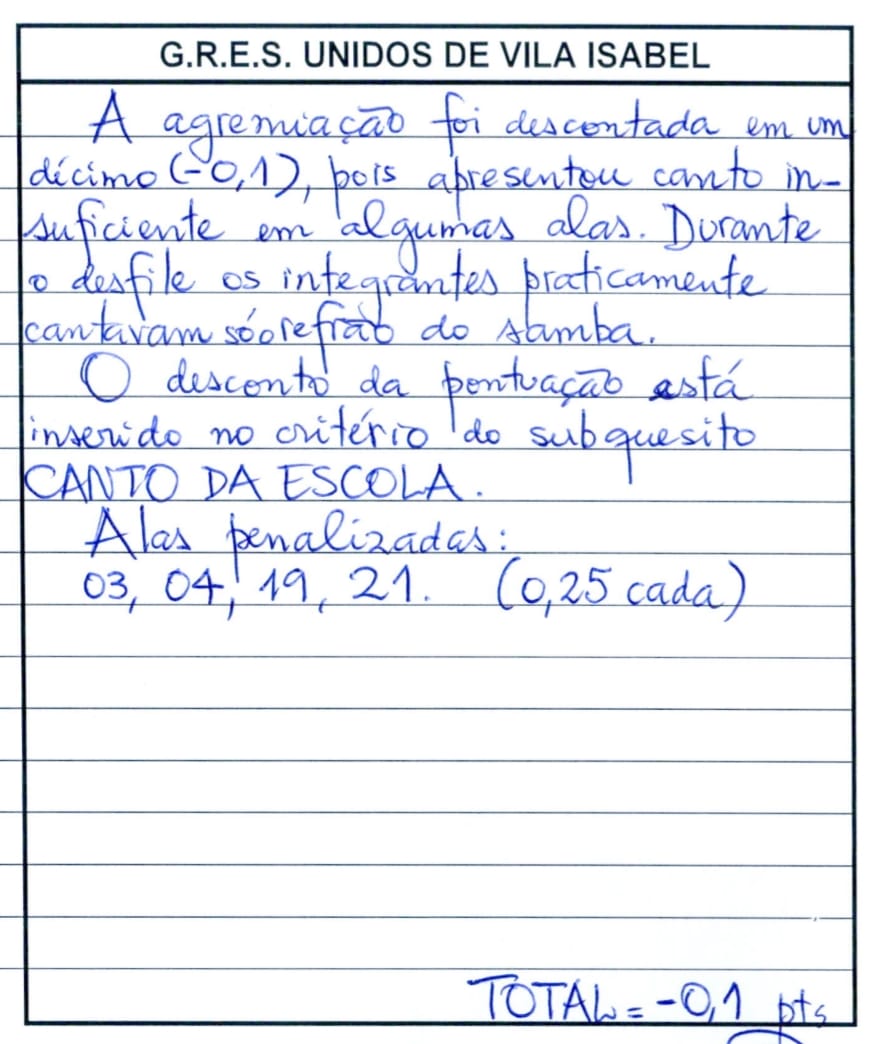 G.R.E.S. UNIDOS DE VILA ISABEL
A agremiação foi descontada em um
décimo (-0,1), pois apresentou canto in-
suficiente em algumas alas. Durante
o desfile os integrantes praticamente
cantavam só o refrão do samba.
O desconto da pontuação está
inserido no critério do subquesito
CANTO DA ESCOLA.
Alas penalizadas:
03, 04, 19, 21. (0,25 cada)
TOTAL = -0,1 pts